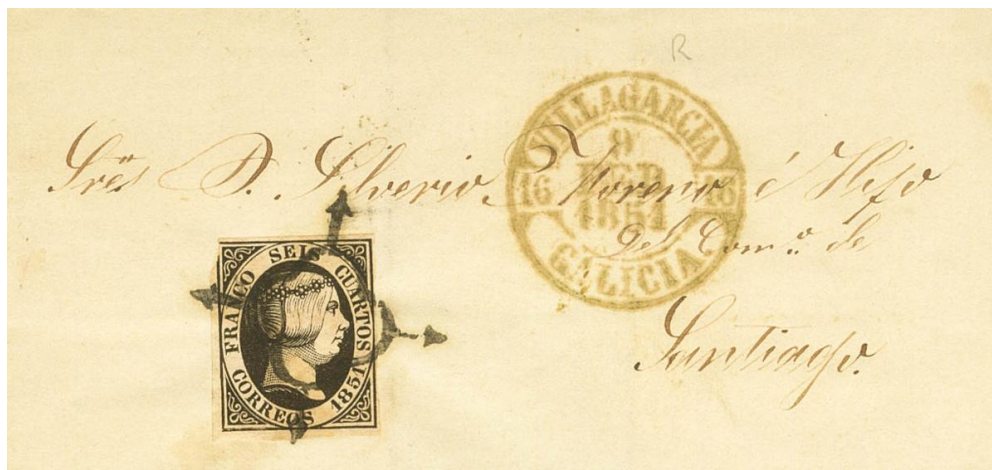 R
VILLAGARCIA
9
FEB
1851
16 16
GALICIA
Sres D. Silverio Moreno é Hijo
del Comº. de
Santiago.
FRANCO SEIS CUARTOS
CORREOS 1851